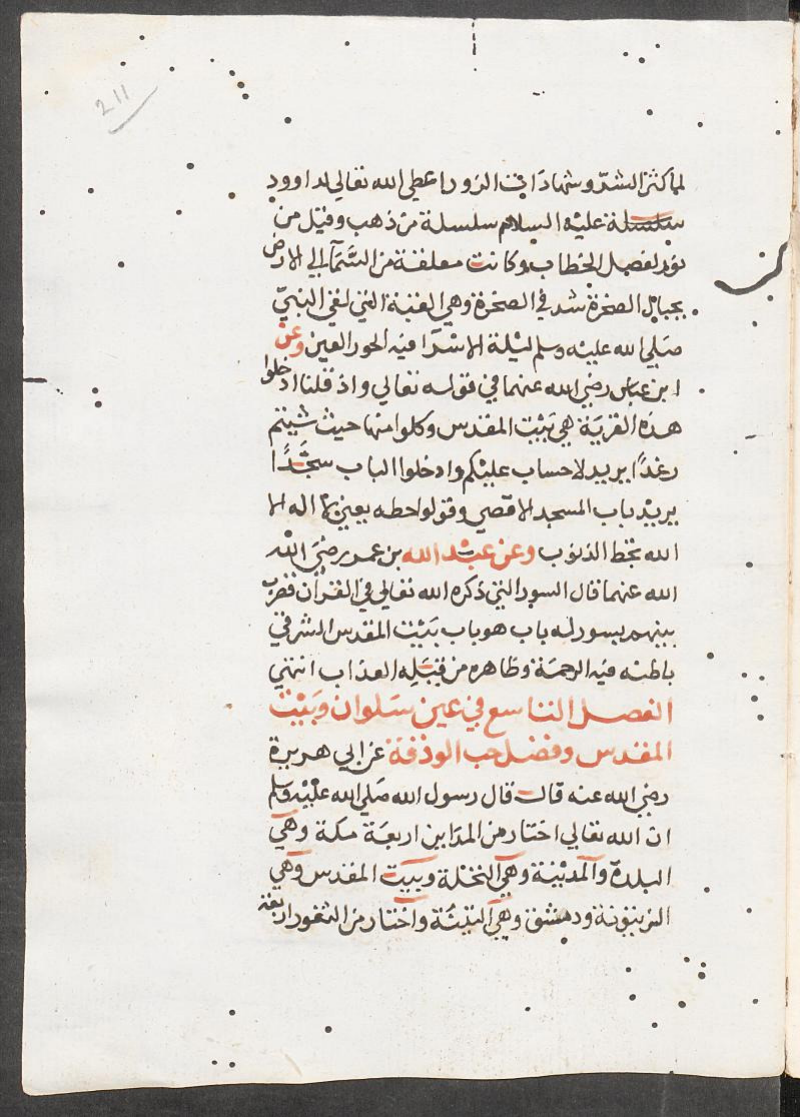 211
لما كثر الشر وشهادات الزور اعطي الله تعالي لداوود
سلسلة عليه السلام سلسلة من ذهب وقيل من
نور لفصل الخطاب وكانت معلقة من السمآ الي الارض
بحيال الصخرة شد في الصخرة وهي القبة التي لقي النبيّ
صلي الله عليه وسلم ليلة الاسرا فيه الحور العين وعن
ابن عباس رضي الله عنهما في قوله تعالي واذ قلنا ادخلوا
هذه القرية هي بيت المقدس وكلوا منها حيث شيتم
رغدًا يريد لا حساب عليكم وادخلوا الباب سجّدًا
يريد باب المسجد الاقصي وقولوا حطه يعني لا اله الا
الله تحط الذنوب وعن عبد الله بن عمر رضي الله
الله عنهما قال السور التي ذكره الله تعالي في القرآن فضرب
بينهم بسور له باب هو باب بيت المقدس الشرقي
باطنه فيه الرحمة وظاهره من قبله العذاب انتهي
الفصل التاسع في عين سلوان وبيت
المقدس وفضل حب الوذفة عن ابي هريرة
رضي الله عنه قالت قال رسول الله صلي الله عليه وسلم
ان الله تعالي اختار من المداين اربعة مكة وهي
البلدة والمدينة وهي النخلة وبيت المقدس وهي
الزيتونة ودمشق وهي التينة واختار من الثغور اربعة